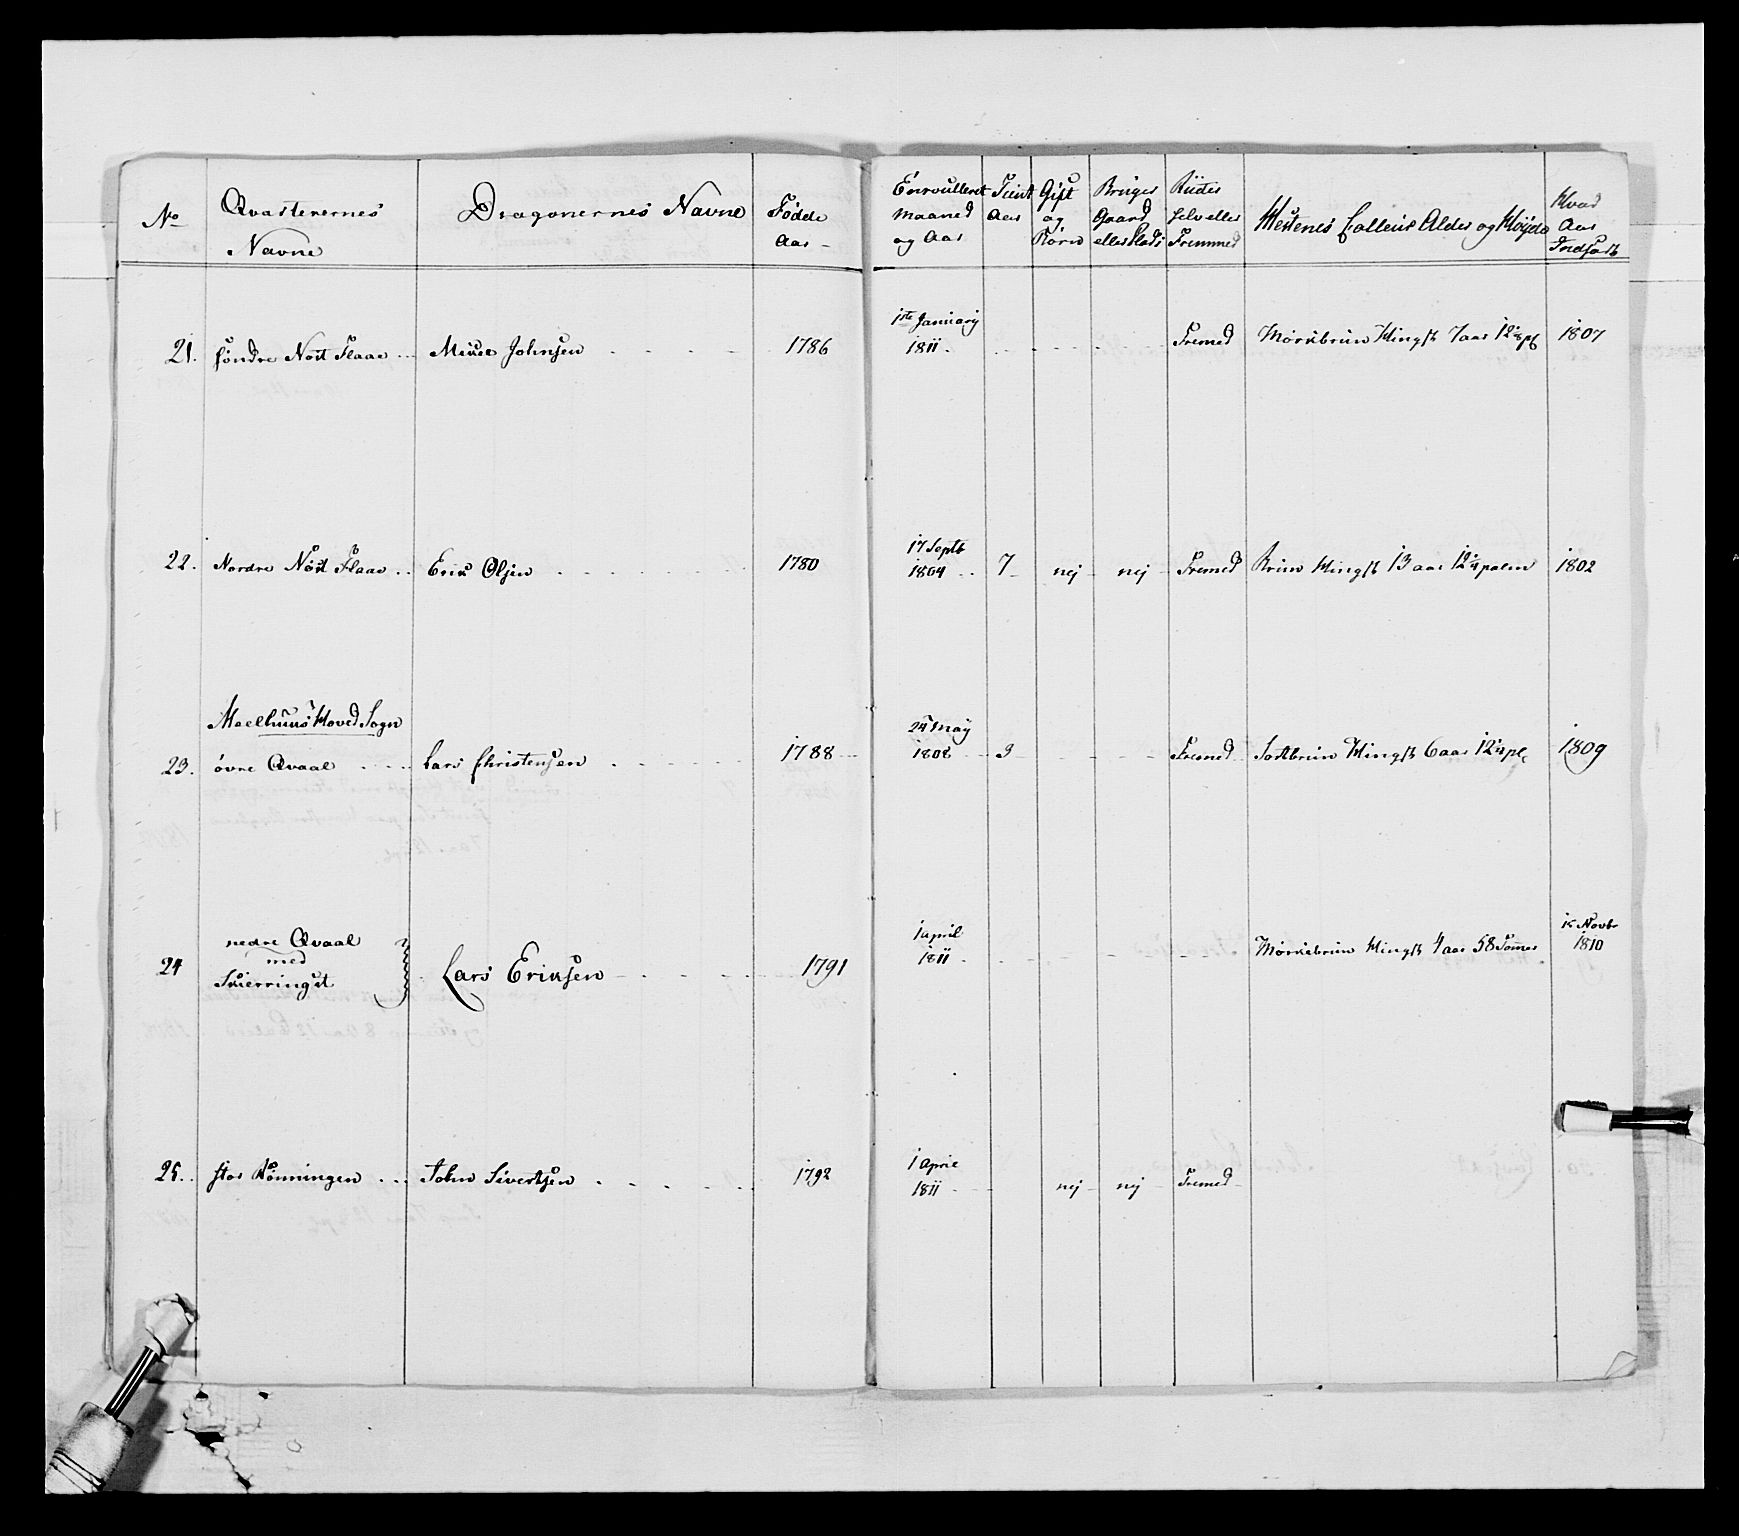 No
Qvarterernes
Navne
Dragonernes Navne
Födde
Aar
Enrvulleret
Maaned
og Aar
Tient
Aar
Gift
og
Börn
Bruger
Gaard
eller Plads
Riides
selv eller
Fremmed
Hestenes Colleur Alder og Höyde
Hvad
Aar
Indsadt
21. söndre Nost Flaae ... Mikel Johnsen 1786 1ste Januarij
1811. Fremed Mörkbrun Hingst 7 aar 12 1807
22. Nordre Nöst Flaae .. Erik Olsen 1780 17 Septb
1804 .. 7 nej nej Fremed Brun Hingst 13 aar 12 1/4 palm 1802
Meelhuus Hoved Sogn
23. övre Qvaal .... Lars Christensen 1788 24 May
1808 3 Fremed Sortbrun Hingst 6 aar 12 1/4 pl 1809
24 nedre Qvaal
med
Skierringst
Lars Eriksen 1791 1 april
1811 Mörkebrun Hingst 4 aar 58 Tommer Novbr
1810
25. stor Rönningen ... John Sivertsen 1792 1 April
1811 nej nej Fremed